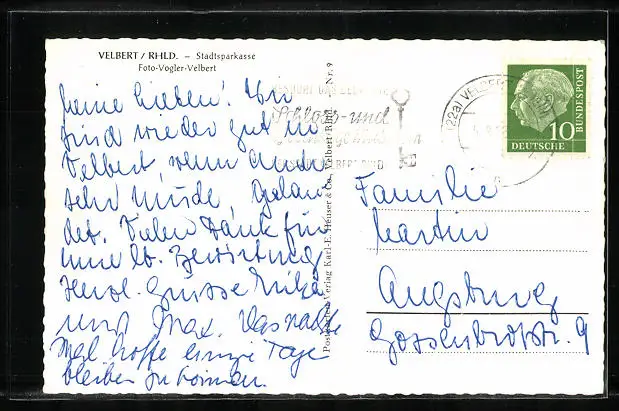 VELBERT / RHLD. – Stadtsparkasse
Foto-Vogler-Velbert
Meine Lieben! Wir
sind wieder gut in
Velbert, wenn auch
sehr müde, gelan-
det. Vielen Dank für
eure lb. Bewirtung
Herzl. Grüsse
und Max. Das nächste
Mal hoffe einige Tage
bleiben zu können.
Postkarten-Verlag Karl-E. Heuser & Co., Velbert-Rhld. Nr. 9
Schloss- und
(22a) VELBERT
10
DEUTSCHE
BUNDESPOST
Familie
Martin
Augsburg
Gossenbrotstr. 9